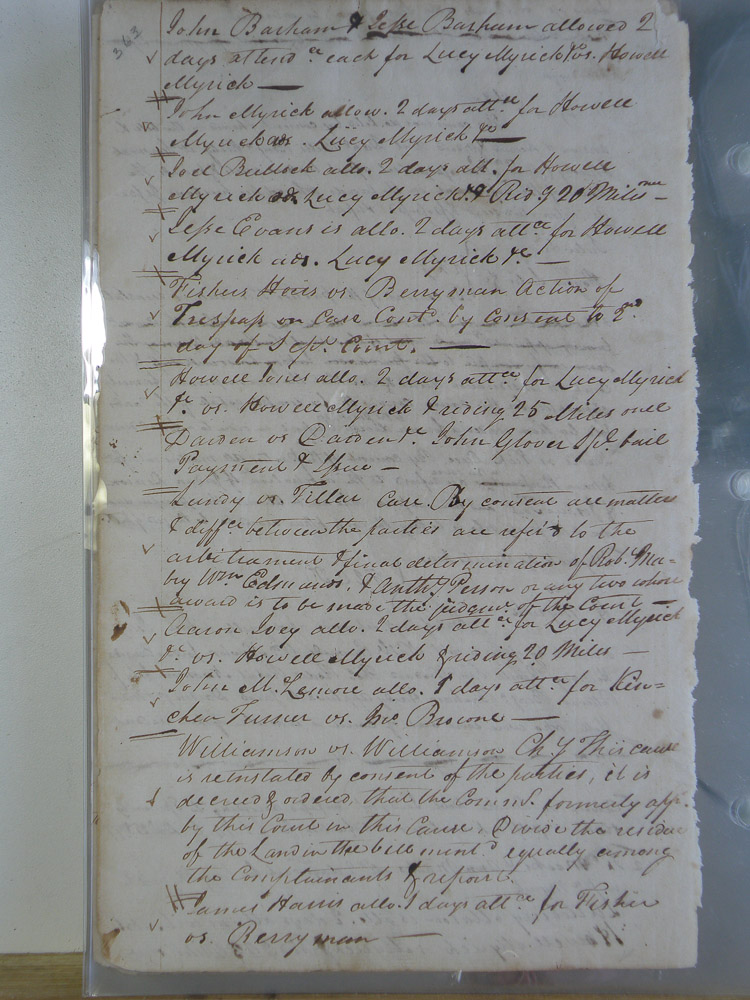 363
John Barham & Jesse Barham allowed 2
days attend.ce each for Lucy Myrick &c vs. Howell
Myrick —
John Myrick allow. 2 days att.ce for Howell
Myrick ads. Lucy Myrick &c —
Joel Bullock allo. 2 days att. for Howell
Myrick ads. Lucy Myrick &c & Rid.g 20 Miles once —
Jesse Evans is allo. 2 days att.ce for Howell
Myrick ads. Lucy Myrick &c —
Fishers Heirs vs. Berryman Action of
Trespass on Case Cont.d by Consent to 2.d
day of Sept. Court. —
Howell Jones allo. 2 days att.ce for Lucy Myrick
&c. vs. Howell Myrick & riding 25 Miles once
Darden vs Darden &c. John Glover Sp.l bail
Payment & Issue —
Lundy vs. Tillar Case. By consent all matters
& diff.ce between the parties are refer'd to the
arbitrament & final determination of Rob.t Ma-
bry W.m Edmunds, & Anth.y Person or any two whose
award is to be made the judgm.t of the Court —
Aaron Ivey allo. 2 days att.ce for Lucy Myrick
&c. vs. Howell Myrick & riding 20 Miles —
John M.cLemore allo. 1 days att.ce for Kin-
chen Turner vs. Jno. Broome —
Williamson vs. Williamson Ch.y This cause
is reinstated by consent of the parties, it is
decreed & ordered that the Comm.s formerly app.d
by this Court in this Cause, Divide the residue
of the Land in the bill ment.d equally among
the Complainants & report.
James Harris allo. 1 days att.ce for Fisher
vs. Berryman —